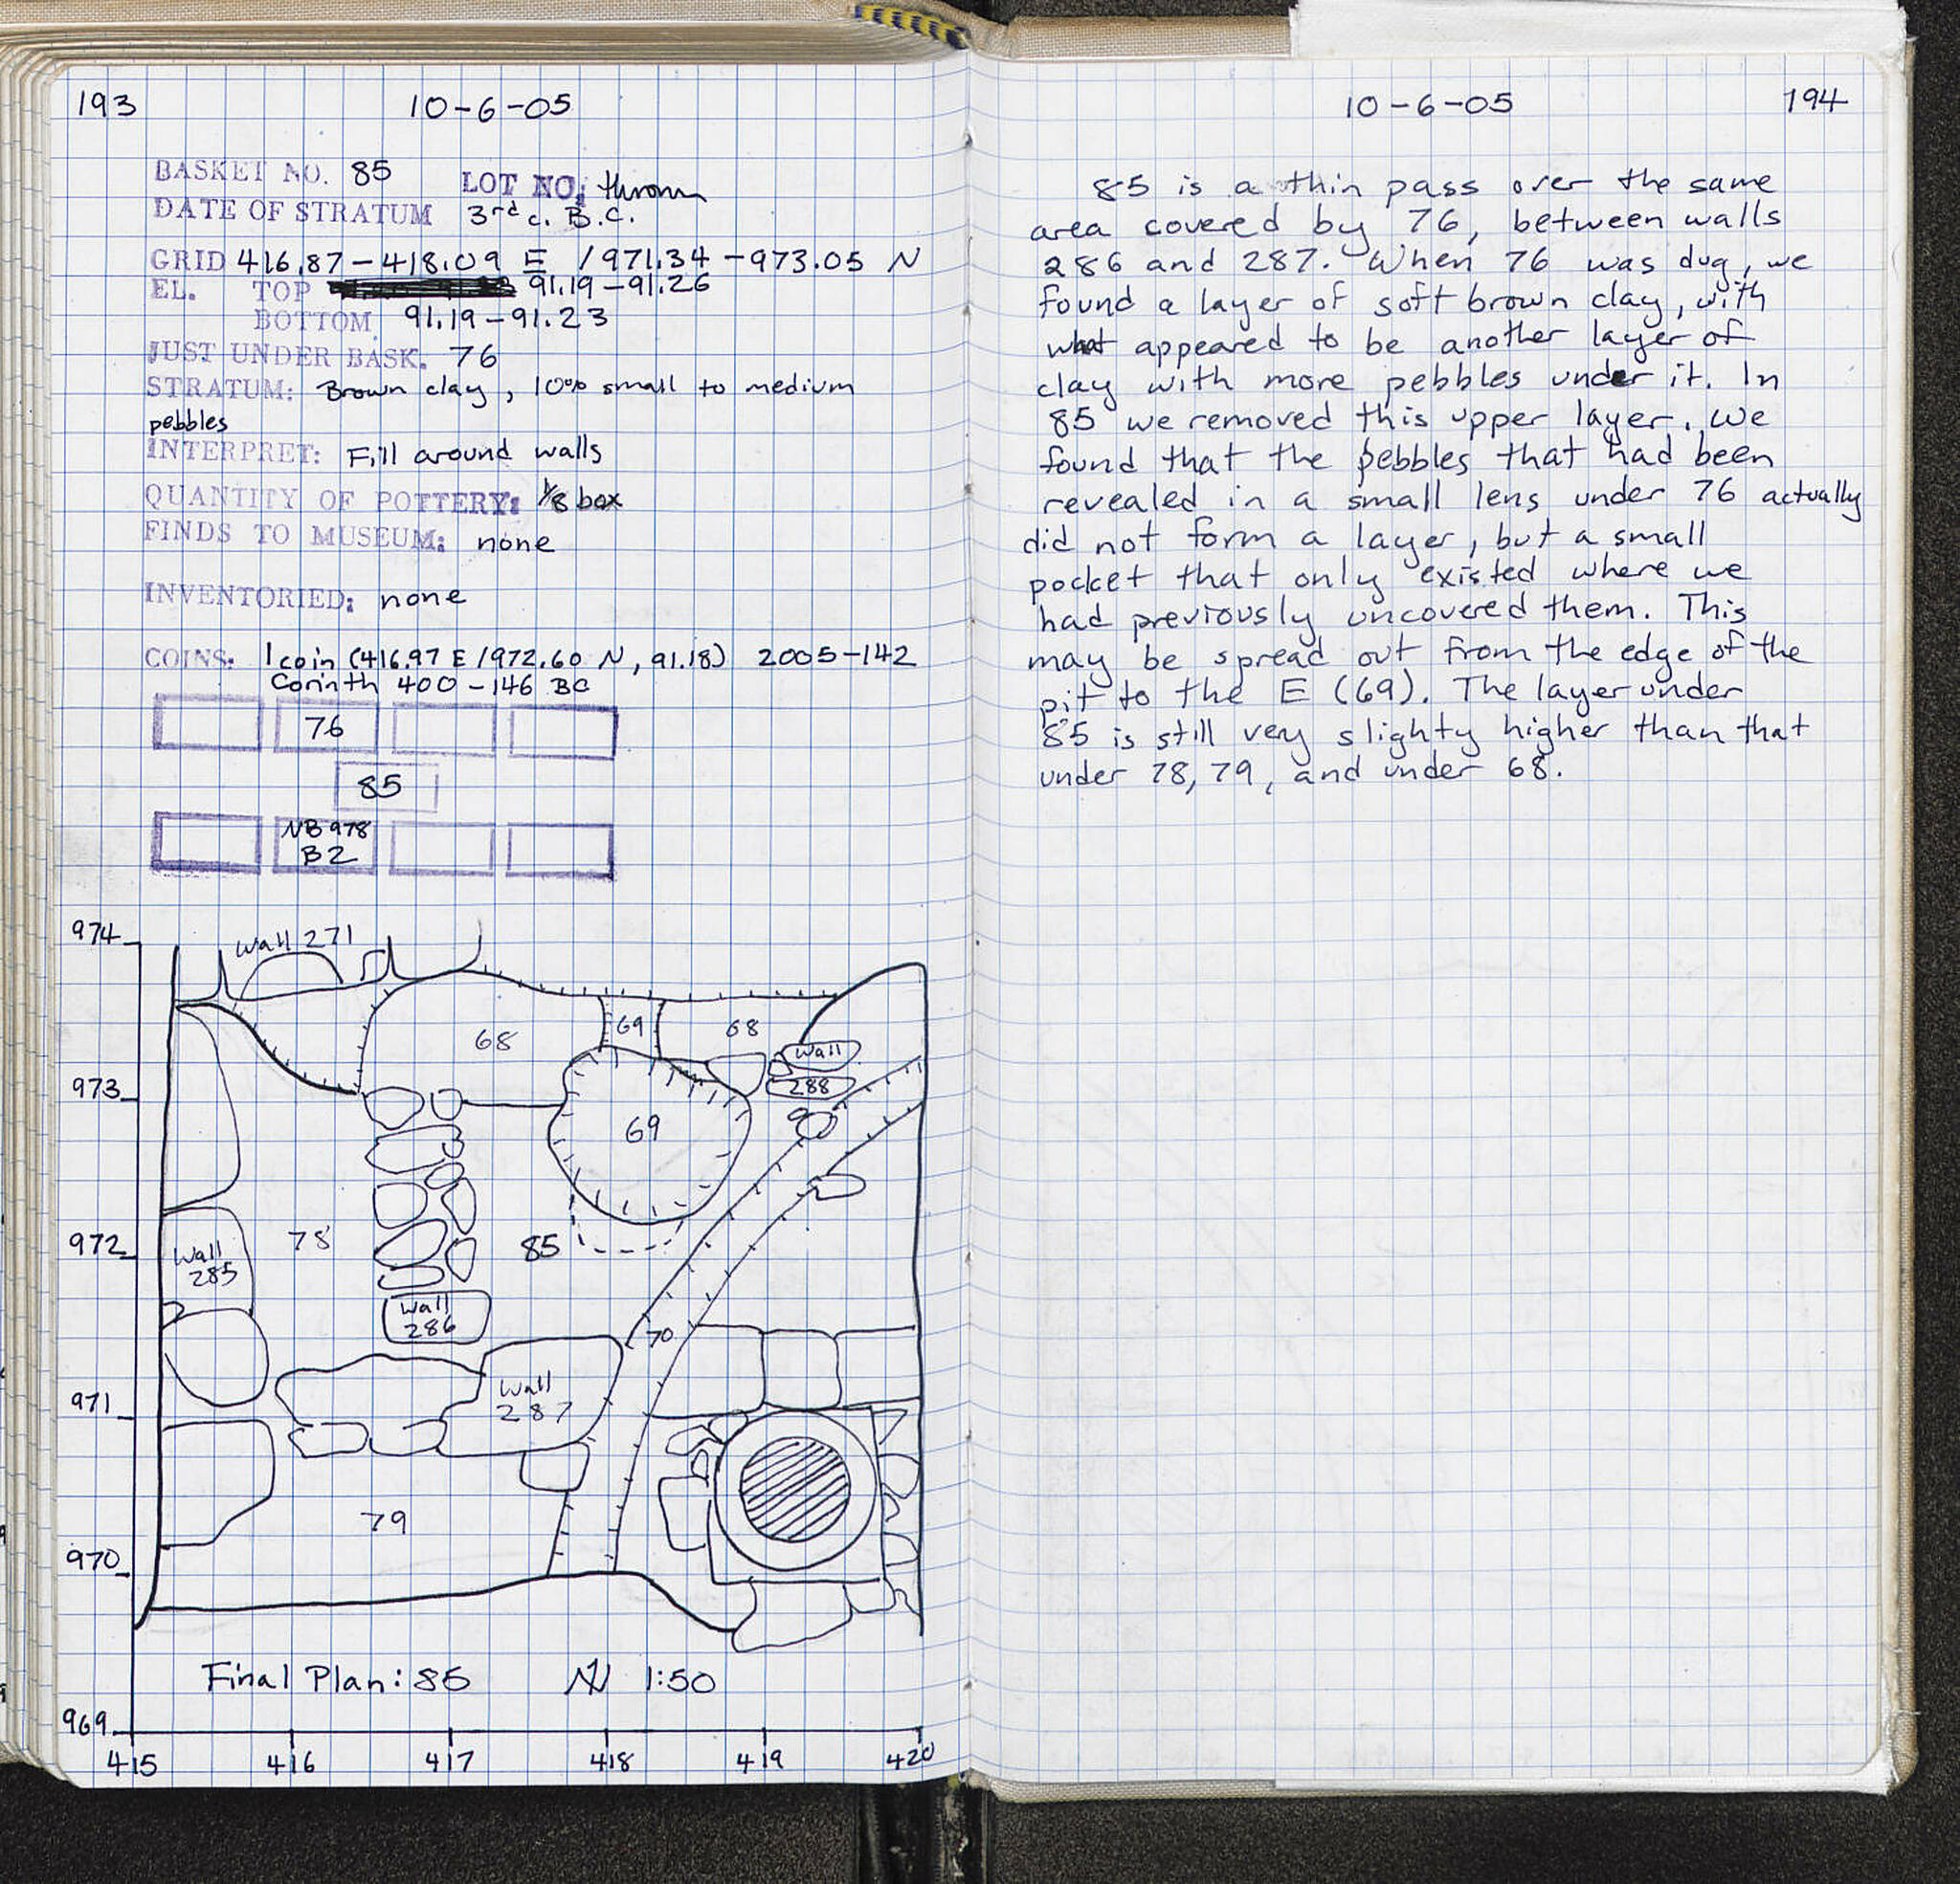 193
10-6-05
BASKET NO. 85
LOT NO: thrown
DATE OF STRATUM 3rd c. B.C.
GRID 416.87-418.09 E / 971.34-973.05 N
EL. TOP 91.19-91.26
BOTTOM 91.19-91.23
JUST UNDER BASK. 76
STRATUM: Brown clay, 10% small to medium
pebbles
INTERPRET: Fill around walls
QUANTITY OF POTTERY: 1/8 box
FINDS TO MUSEUM: none
INVENTORIED: none
COINS: 1 coin (416.97 E / 972.60 N, 91.18) 2005-142
Corinth 400-146 BC
76
85
NB 978
B2
974
973
972
971
970
969
415
416
417
418
419
420
Wall 271
68
69
68
Wall
288
69
78
85
Wall
285
Wall
286
70
Wall
287
79
Final Plan: 85 N 1:50
10-6-05
194
85 is a thin pass over the same
area covered by 76, between walls
286 and 287. When 76 was dug, we
found a layer of soft brown clay, with
what appeared to be another layer of
clay with more pebbles under it. In
85 we removed this upper layer. We
found that the pebbles that had been
revealed in a small lens under 76 actually
did not form a layer, but a small
pocket that only existed where we
had previously uncovered them. This
may be spread out from the edge of the
pit to the E (69). The layer under
85 is still very slighty higher than that
under 78, 79, and under 68.